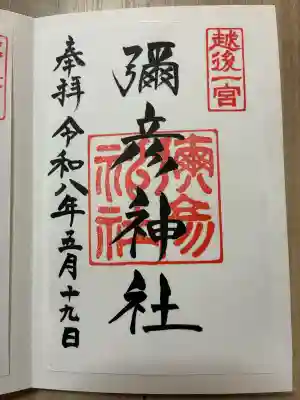 越後一宮
彌彦神社
奉拝 令和八年五月十九日